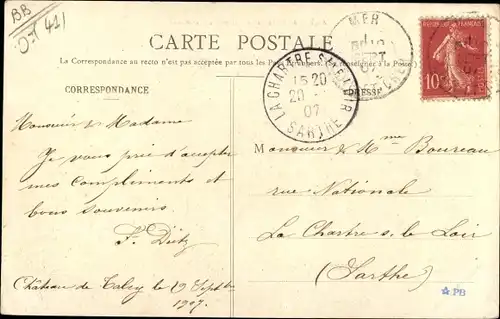 BB
O-T 421
CARTE POSTALE
La Correspondance au recto n'est pas acceptée par tous les Pays étrangers. (Se renseigner à la Poste)
CORRESPONDANCE
MER
LA CHARTRE S/ LE LOIR
15 20
20
07
SARTHE
10
Monsieur & Madame
Je vous prie d'accepter
mes compliments et
bons souvenirs.
F. Dietz
Château de Talcy le 19 Septbre
1907.
Monsieur & Mme Boureau
rue Nationale
La Chartre s. le Loir
(Sarthe)
PB